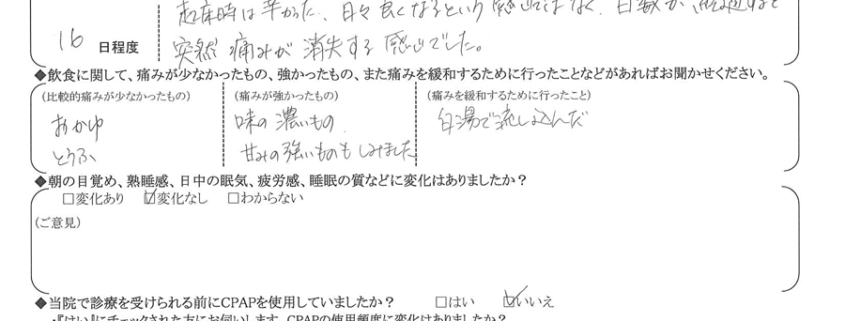 起床時は辛かった、日々良くなるという感じではなく、日数が
16 日程度 突然痛みが消失する感じでした。
◆飲食に関して、痛みが少なかったもの、強かったもの、また痛みを緩和するために行ったことなどがあればお聞かせください。
(比較的痛みが少なかったもの) (痛みが強かったもの) (痛みを緩和するために行ったこと)
おかゆ 味の濃いもの 白湯で流し込んだ
とうふ 甘みの強いものもしみました
◆朝の目覚め、熟睡感、日中の眠気、疲労感、睡眠の質などに変化はありましたか?
□変化あり ☑変化なし □わからない
(ご意見)
◆当院で診療を受けられる前にCPAPを使用していましたか? □はい ☑いいえ
・『はい』にチェックされた方にお伺いします、CPAPの使用頻度に変化はありましたか?